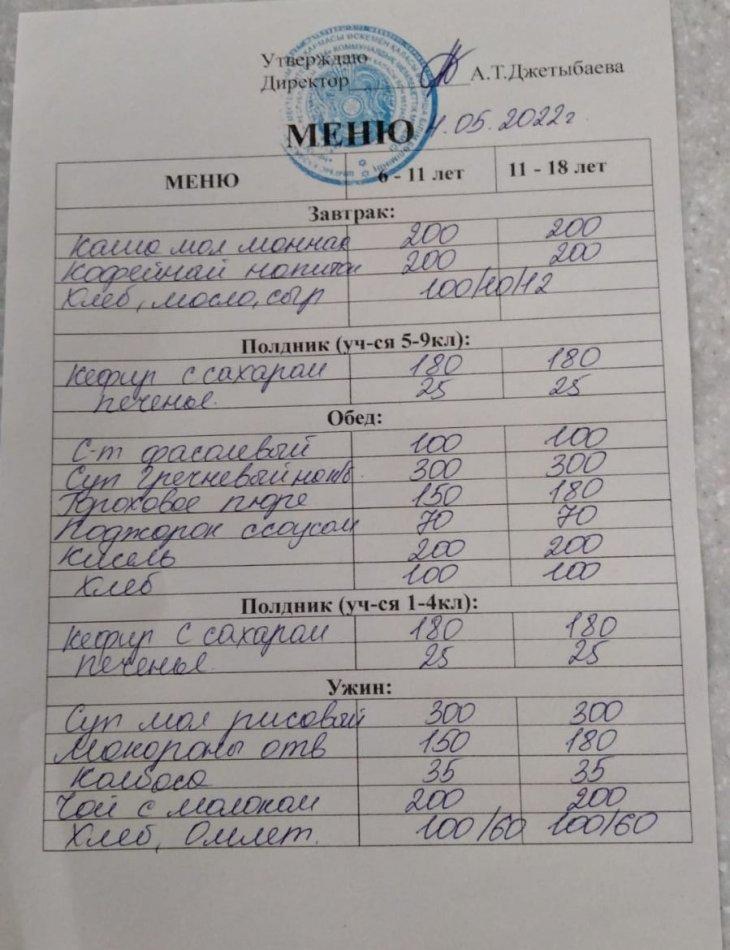 Утверждаю
Директор А.Т.Джетыбаева
МЕНЮ 4.05.2022г
МЕНЮ 6 - 11 лет 11 - 18 лет
Завтрак:
Каша мол манная 200 200
Кофейный напиток 200 200
Хлеб, масло, сыр 100/10/12
Полдник (уч-ся 5-9кл):
Кефир с сахаром 180 180
печенье 25 25
Обед:
С-т фасолевый 100 100
Суп гречневый 300 300
Гороховое пюре 150 180
Поджарок с соусом 70 70
Кисель 200 200
Хлеб 100 100
Полдник (уч-ся 1-4кл):
Кефир с сахаром 180 180
печенье 25 25
Ужин:
Суп мол рисовый 300 300
Макароны отв 150 180
Колбаса 35 35
Чай с молоком 200 200
Хлеб, Омлет. 100/60 100/60